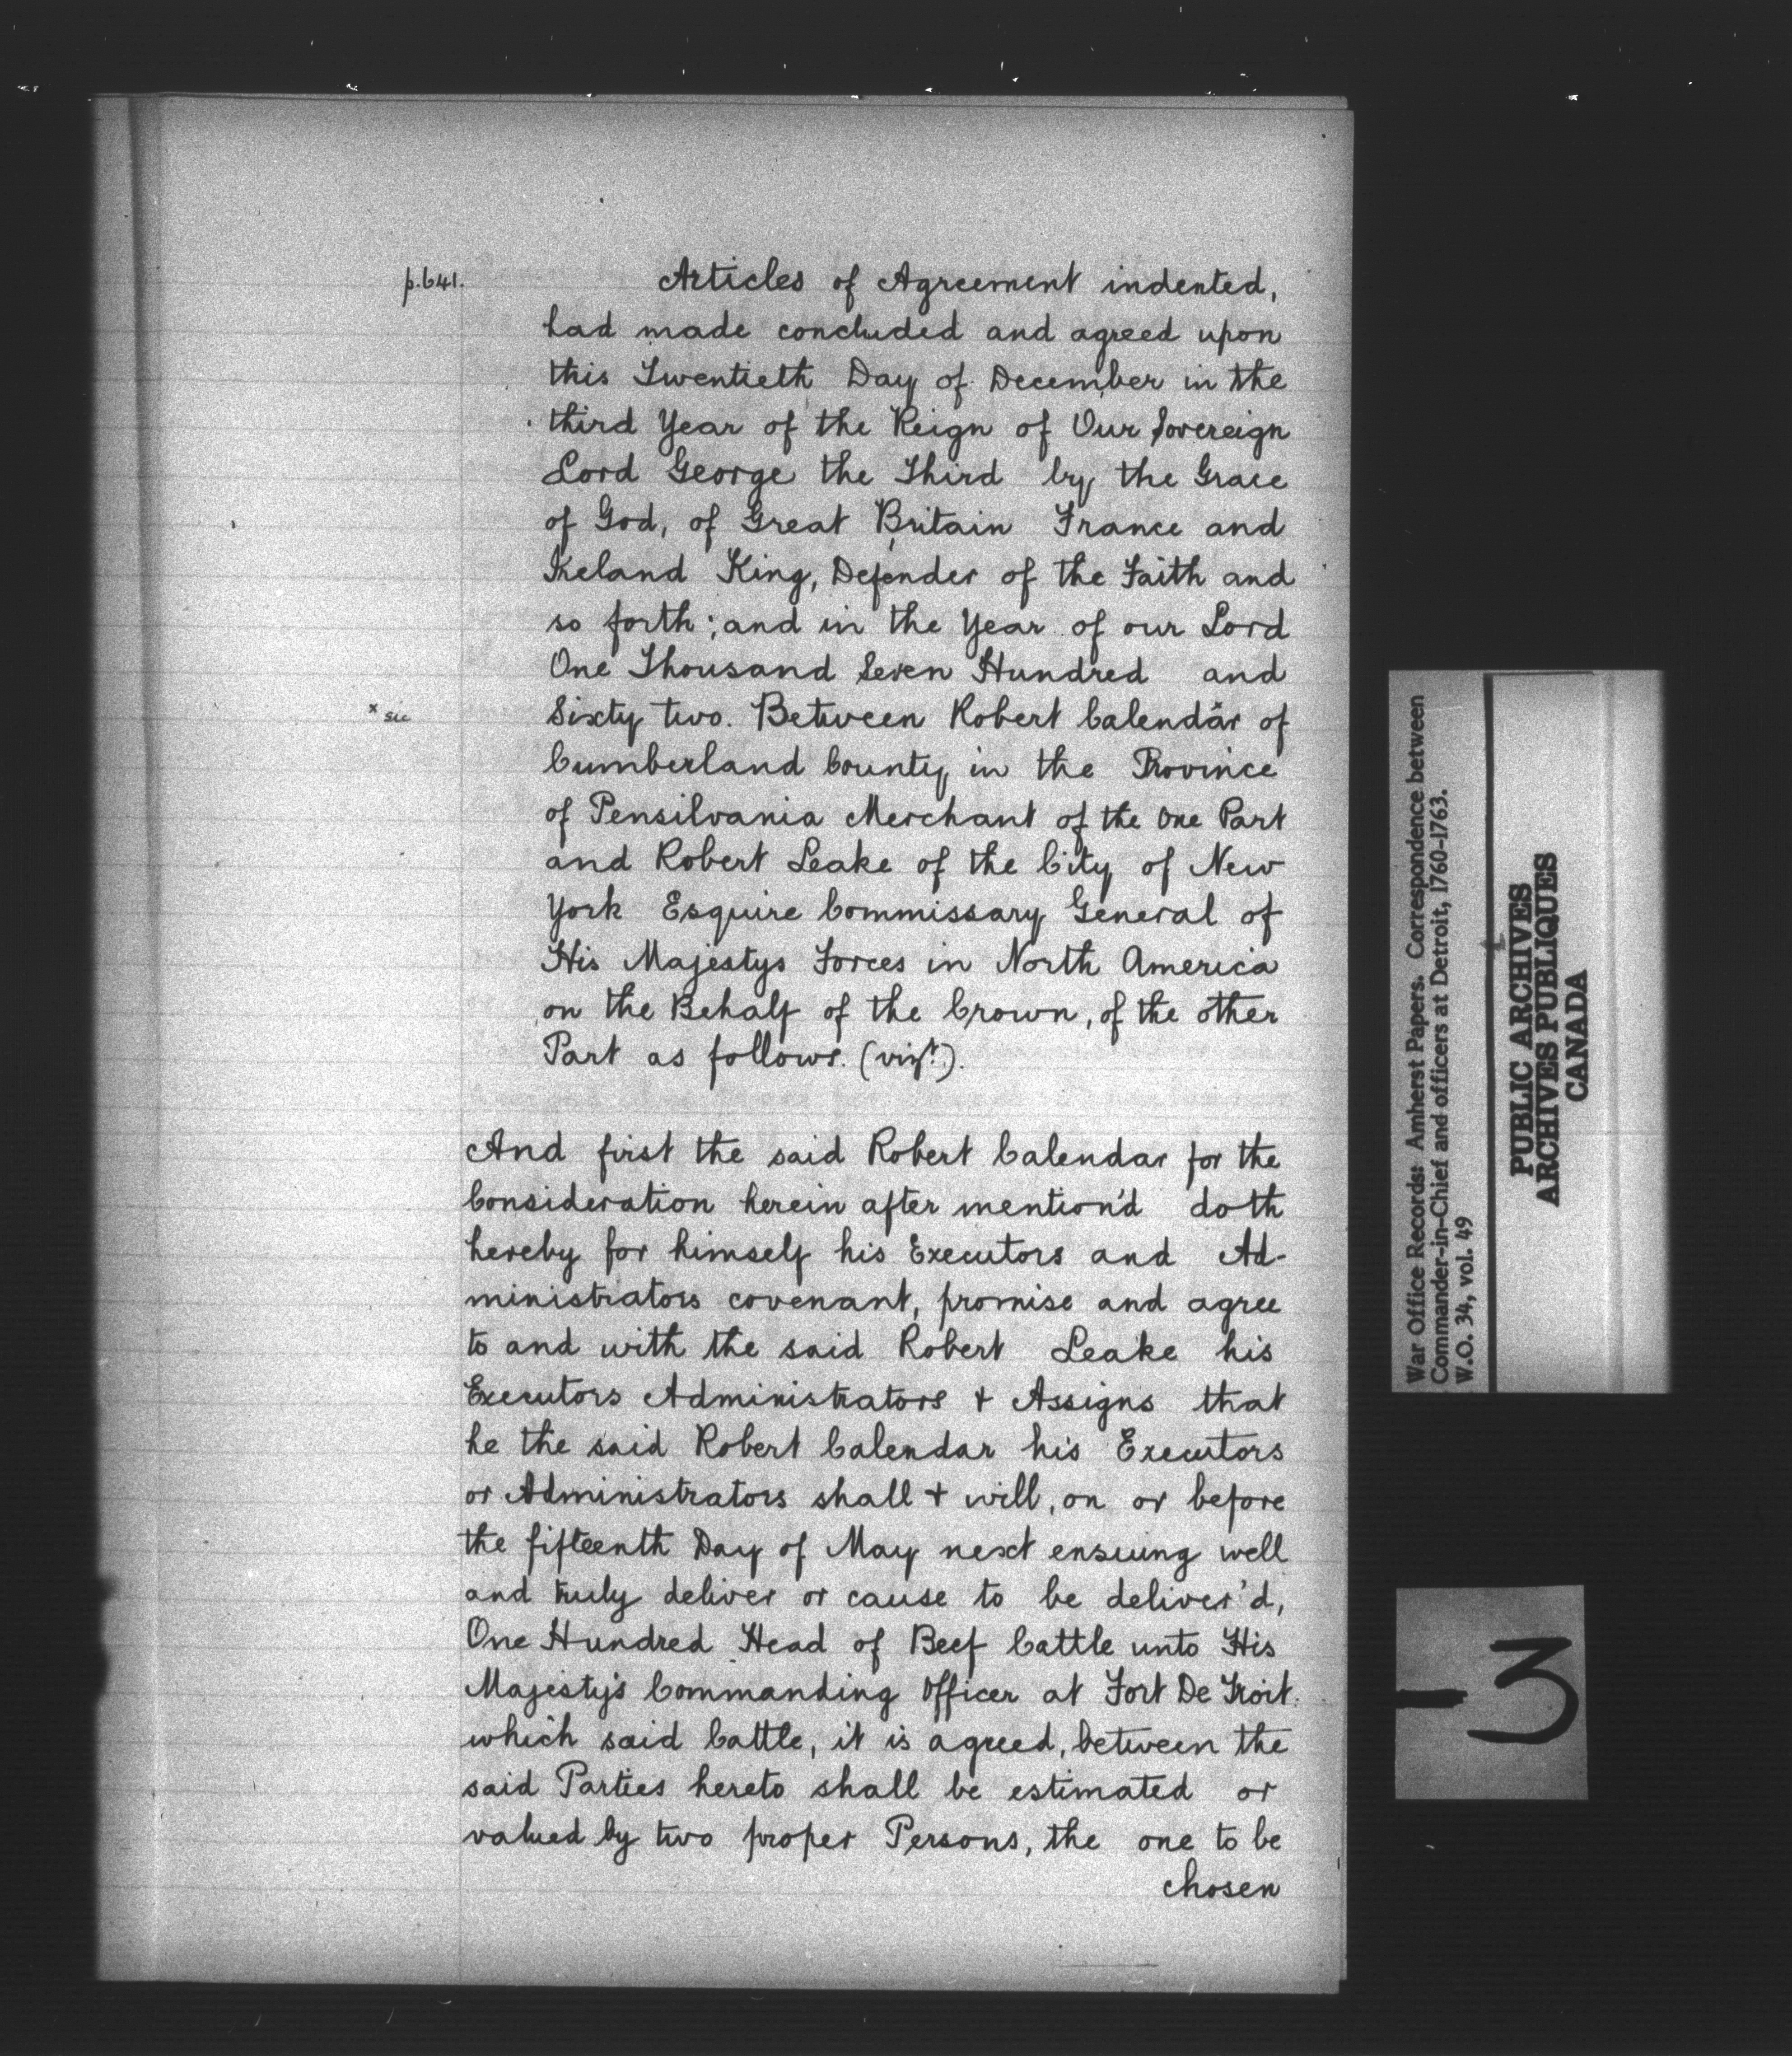 p.641.
Articles of Agreement indented,
had made concluded and agreed upon
this Twentieth Day of December in the
third Year of the Reign of Our Sovereign
Lord George the Third by the Grace
of God, of Great Britain France and
Ireland King, Defender of the Faith and
so forth; and in the Year of our Lord
One Thousand Seven Hundred and
x sic
Sixty two. Between Robert Calendar x of
Cumberland County in the Province
of Pensilvania Merchant of the One Part
and Robert Leake of the City of New
York Esquire Commissary General of
His Majestys Forces in North America
on the Behalf of the Crown, of the other
Part as follows. (vizt.).
And first the said Robert Calendar for the
Consideration herein after mention'd doth
hereby for himself his Executors and Ad-
ministrators covenant, promise and agree
to and with the said Robert Leake his
Executors Administrators + Assigns that
he the said Robert Calendar his Executors
or Administrators shall + will, on or before
the fifteenth Day of May next ensuing well
and truly deliver or cause to be deliver'd,
One Hundred Head of Beef Cattle unto His
Majesty's Commanding Officer at Fort De Troit.
which said Cattle, it is agreed, between the
said Parties hereto shall be estimated or
valued by two proper Persons, the one to be
chosen
War Office Records: Amherst Papers. Correspondence between
Commander-in-Chief and officers at Detroit, 1760-1763.
W.O. 34, vol. 49
PUBLIC ARCHIVES
ARCHIVES PUBLIQUES
CANADA
-3